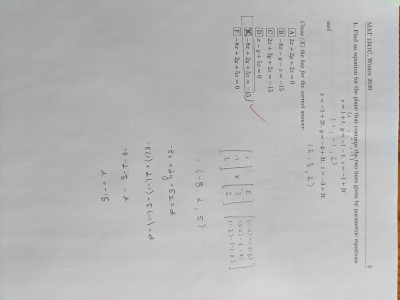 MAT 1341C, Winter 2020
2
1. Find an equation for the plane that contains the two lines given by parametric equations
x = 1 + t, y = -1 - t, z = -1 + 2t
(1, -1, 2)
and
x = -1 + 2t, y = -4 + 3t, z = -3 + 2t
(2, 3, 2)
Cross (X) the box for the correct answer:
A 2x + 2y + 2z = 0
B -8x - y - z = -15
C 2x + 3y + 2z = -15
D x - y + 5z = 0
-8x + 2y + 5z = -15
F -8x + 2y + 5z = 0
= (-8, 2, 5)
-8x + 2y + 5z = d
-8(1) + 2(-1) + 5(-1) = d
-8 - 2 - 5 = d
d = -15